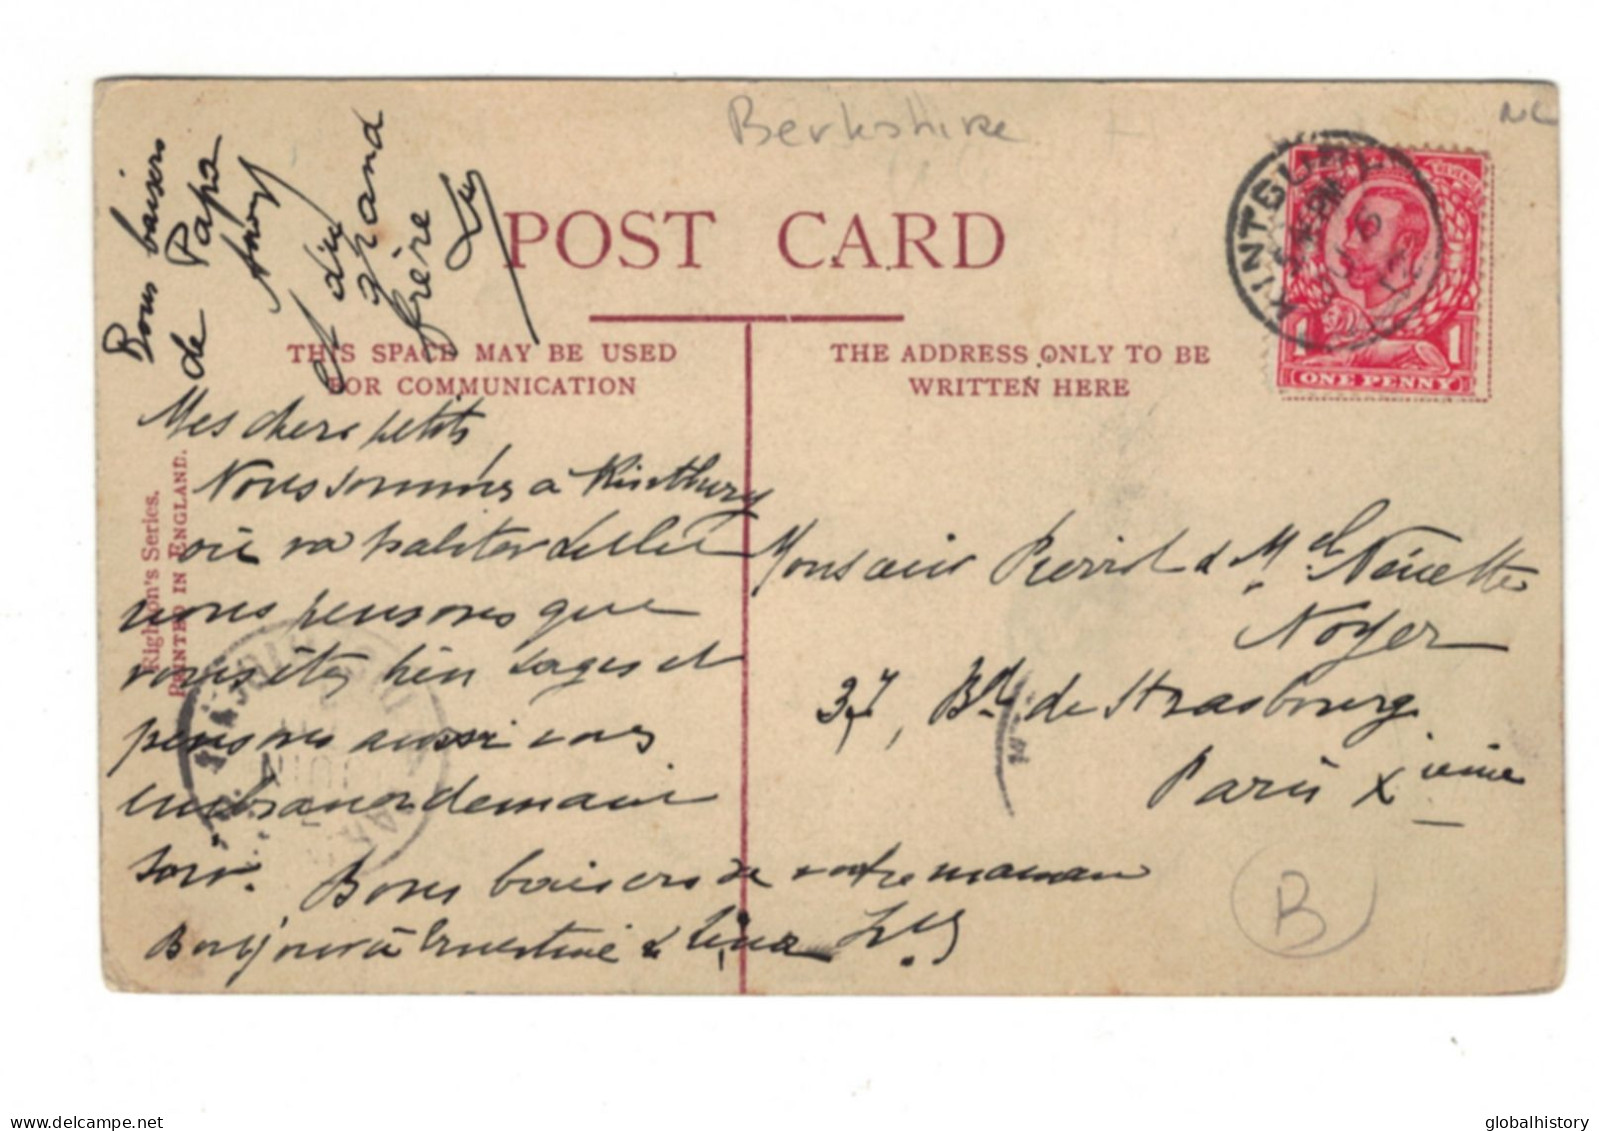 Berkshire
NL
Bons baisers
de Papa
et du
grand
frère
POST CARD
KINTBURY
THIS SPACE MAY BE USED
FOR COMMUNICATION
THE ADDRESS ONLY TO BE
WRITTEN HERE
1 ONE PENNY 1
Righton's Series.
PRINTED IN ENGLAND.
Mes chers petits
Nous sommes à Kintbury
où va habiter
nous pensons que
vous êtes bien sages et
pensons aussi vous
embrasser demain
soir. Bons baisers de votre maman
Bonjour à Ernestine &
Monsieur Pierrot & Melle Nénette
Noyer
37, Bd de Strasbourg
Paris Xième
B
globalhistory